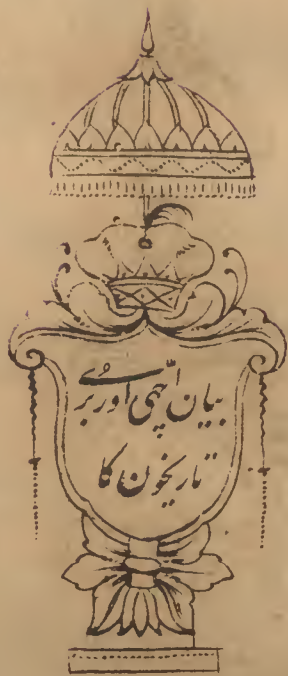 بیان اچّھی اور بُرے
تاریخون کا